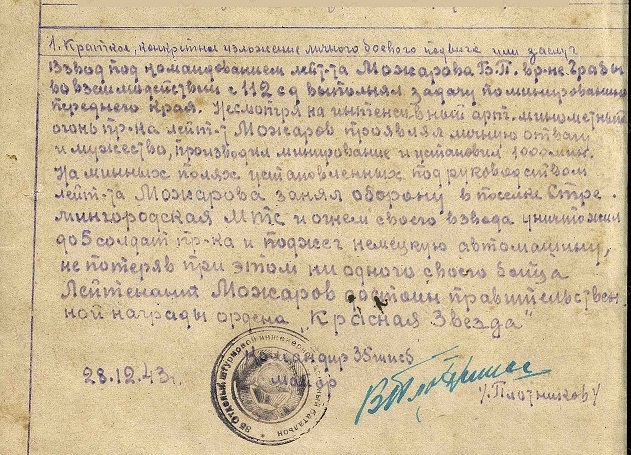 1. Краткое, конкретное изложение личного боевого подвига или заслуг
Взвод под командованием лейт-та Можарова В.П. в р-не Гразы
во взаимодействии с 112 сд выполнял задачу по минированию
переднего края. Несмотря на интенсивный арт. минометный
огонь пр-ка лейт-т Можаров проявляя личную отвагу
и мужество, производил минирование и установил 1000 мин.
На минных полях установленных под руководством
лейт-та Можарова занял оборону в поселке Стре
мингородская МТС и огнем своего взвода уничтожил
до 5 солдат пр-ка и поджег немецкую автомашину,
не потеряв при этом ни одного своего бойца
Лейтенант Можаров достоин правительствен
ной награды ордена „Красная Звезда"
Командир 35 шисб
28.12.43г. майор /Плотников/
35 ОТДЕЛЬНЫЙ ШТУРМОВОЙ ИНЖЕНЕРНО БАТАЛЬОН